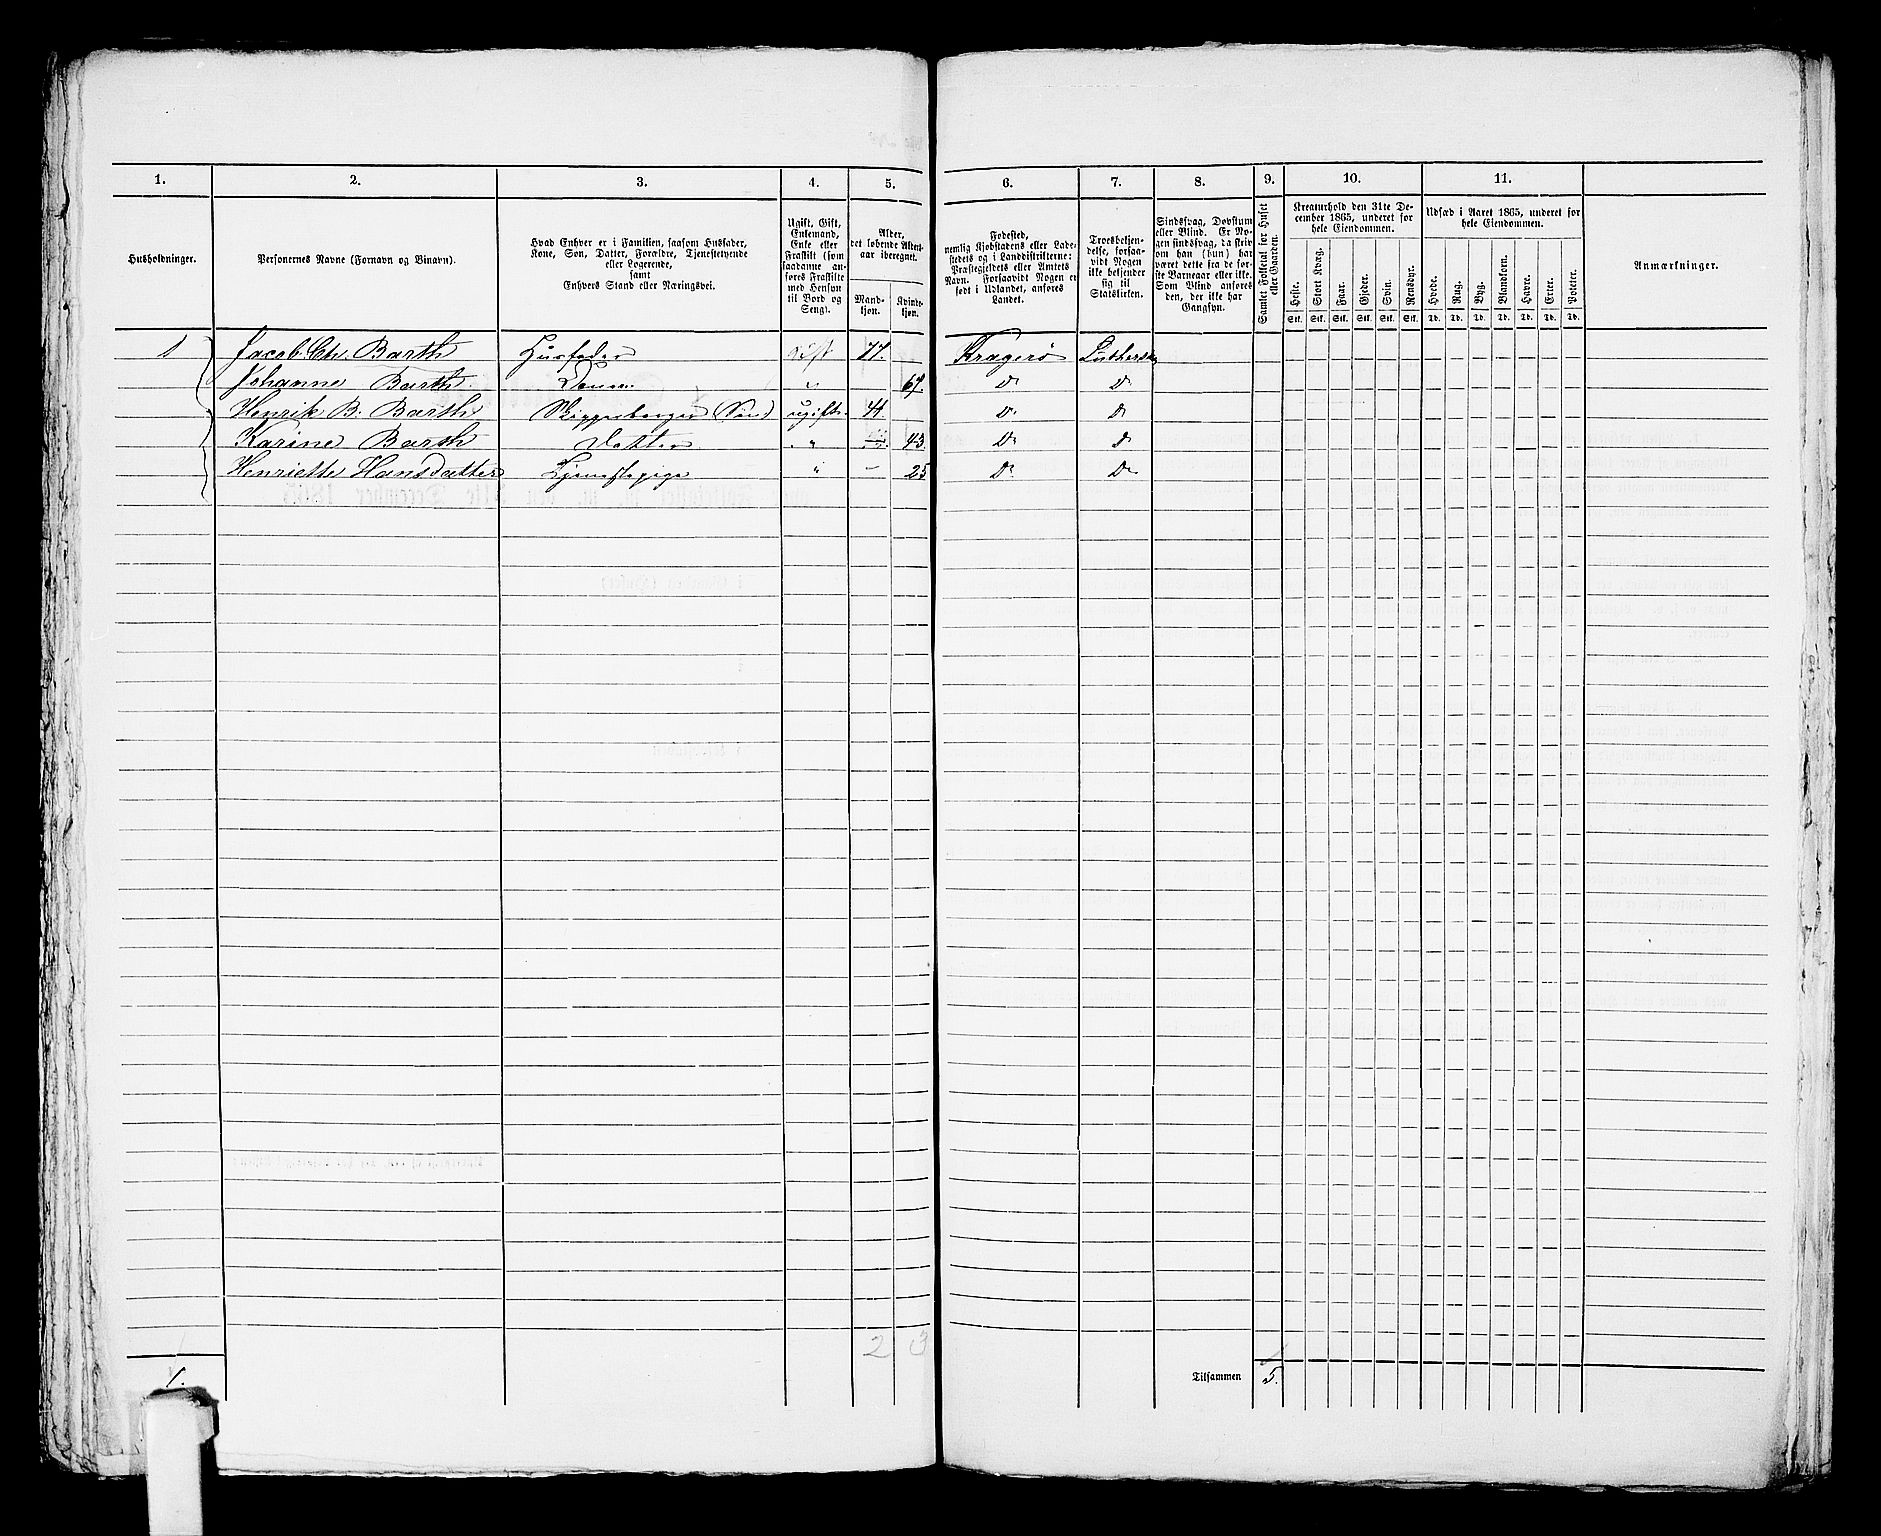 1. 2. 3. 4. 5. 6. 7. 8. 9. 10. 11.
Husholdninger.
Personernes Navne (Fornavn og Binavn).
Hvad Enhver er i Familien, saasom Husfader,
Kone, Søn, Datter, Forældre, Tjenestetyende
eller Logerende,
samt
Enhvers Stand eller Næringsvei.
Ugift, Gift,
Enkemand,
Enke eller
Fraskilt (som
saadanne an-
føres Fraskilte
med Hensyn
til Bord og
Seng).
Alder,
det løbende Alders-
aar iberegnet.
Mand-
kjøn.
Kvinde-
kjøn.
Fødested,
nemlig Kjøbstadens eller Lade-
stedets og i Landdistrikterne:
Præstegjeldets eller Amtets
Navn. Forsaavidt Nogen er
født i Udlandet, anføres
Landet.
Troesbekjen-
delse, forsaa-
vidt Nogen
ikke bekjender
sig til
Statskirken.
Sindssvag, Døvstum
eller Blind. Er No-
gen sindssvag, da skriv
om han (hun) har
været dette fra de før-
ste Barneaar eller ikke.
Som Blind anføres
den, der ikke har
Gangsyn.
Samlet Folketal for Huset
eller Gaarden.
Kreaturhold den 31te De-
cember 1865, underet for
hele Eiendommen.
Heste. Stort Kvæg. Faar. Gjeder. Svin. Rensdyr.
Stk. Stk. Stk. Stk. Stk. Stk.
Udsæd i Aaret 1865, underet for
hele Eiendommen.
Hvede. Rug. Byg. Blandkorn. Havre. Erter. Poteter.
Td. Td. Td. Td. Td. Td. Td.
Anmærkninger.
1 Jacob Ch. Barth Husfader gift 77. Kragerø Luthersk
Johanne Barth Konen " 67. Do Do
Henrik B. Barth Skipperborger (Søn) ugift 41. Do Do
Karine Barth Datter " 43 Do Do
Henriette Hansdatter Tjenestepige " – 25 Do Do
2 3
1. Tilsammen 5.